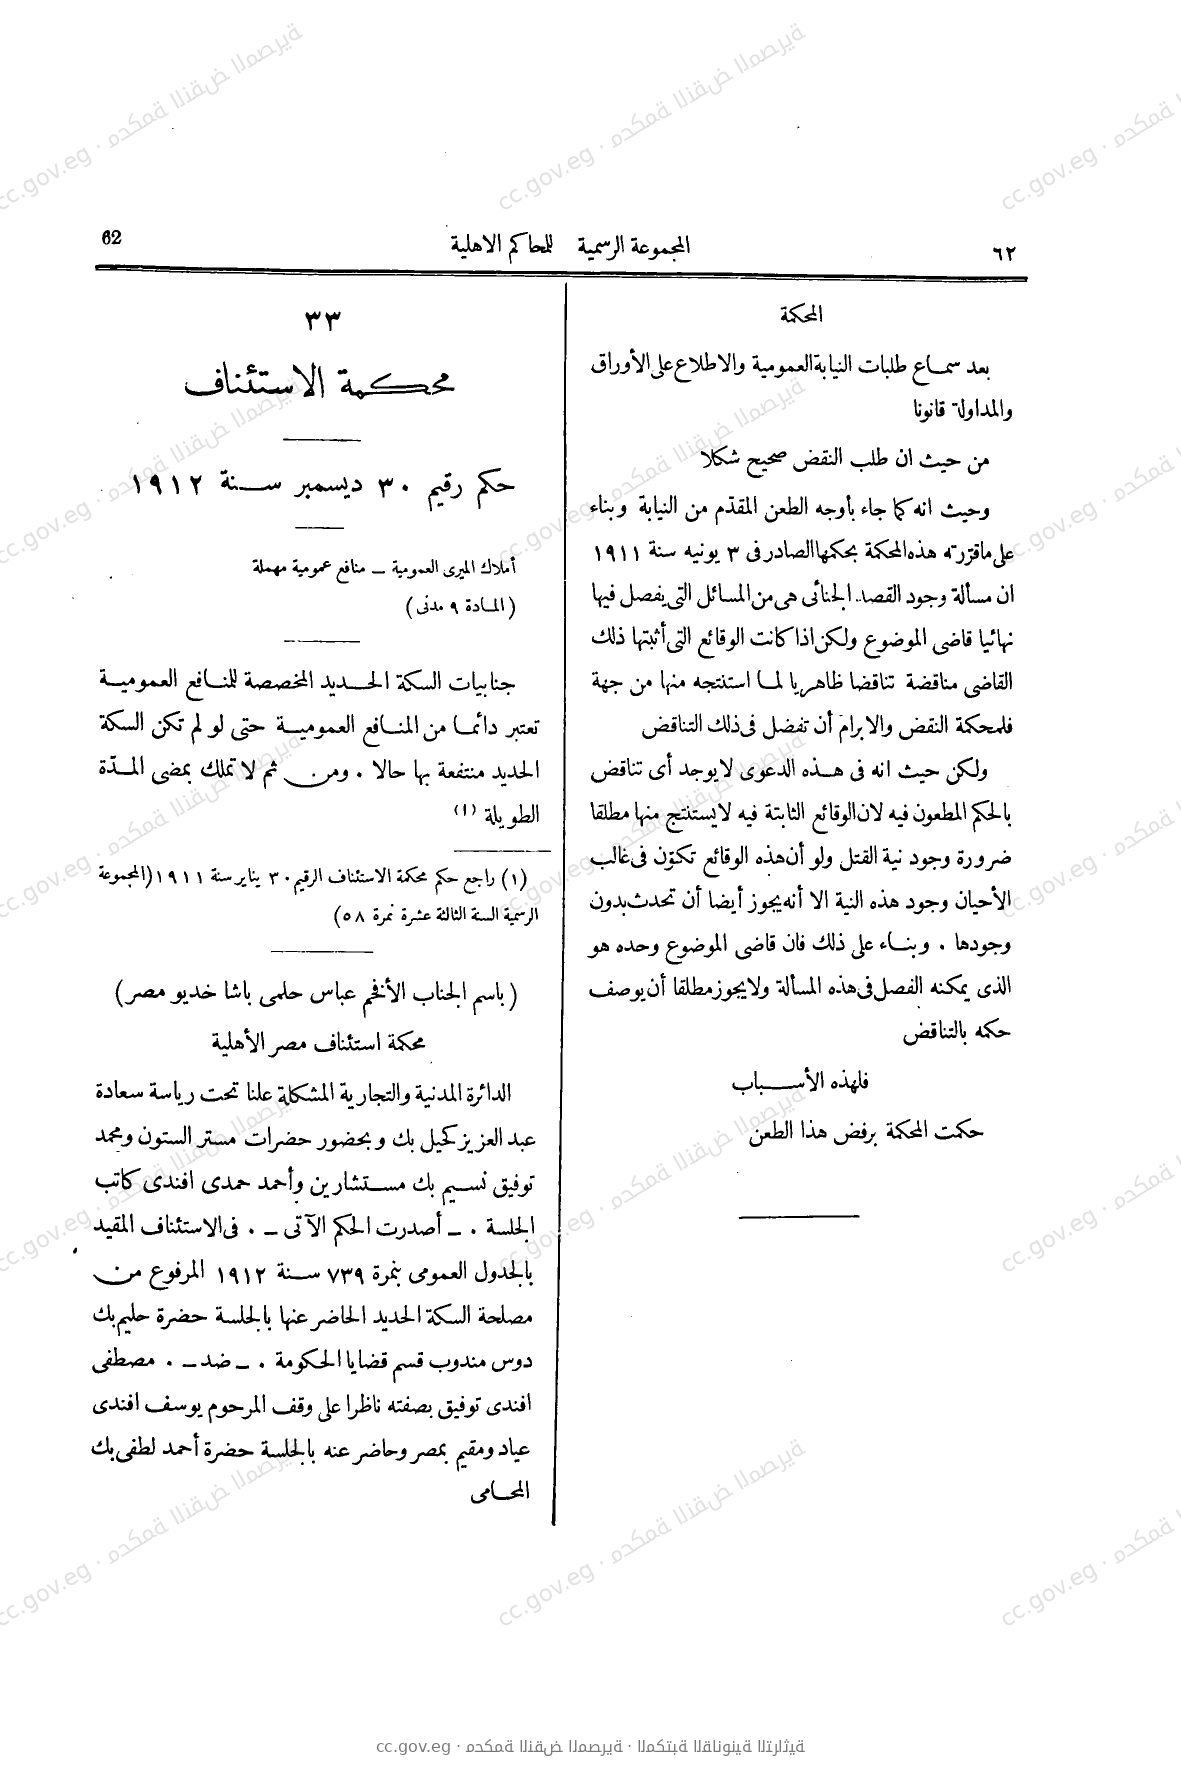 ٦٢
المجموعة الرسمية للمحاكم الاهلية
62
المحكمة
بعد سماع طلبات النيابة العمومية والاطلاع على الأوراق
والمداولة قانونا
من حيث ان طلب النقض صحيح شكلا
وحيث انه كما جاء بأوجه الطعن المقدّم من النيابة وبناء
على ماقرّرته هذه المحكمة بحكمها الصادر فى ٣ يونيه سنة ١٩١١
ان مسألة وجود القصد الجنائى هى من المسائل التى يفصل فيها
نهائيا قاضى الموضوع ولكن اذا كانت الوقائع التى أثبتها ذلك
القاضى مناقضة تناقضا ظاهريا لما استنتجه منها من جهة
فلمحكمة النقض والابرام أن تفضل فى ذلك التناقض
ولكن حيث انه فى هذه الدعوى لا يوجد أى تناقض
بالحكم المطعون فيه لان الوقائع الثابتة فيه لا يستنتج منها مطلقا
ضرورة وجود نية القتل ولو أن هذه الوقائع تكوّن فى غالب
الأحيان وجود هذه النية الا أنه يجوز أيضا أن تحدث بدون
وجودها . وبناء على ذلك فان قاضى الموضوع وحده هو
الذى يمكنه الفصل فى هذه المسألة ولا يجوز مطلقا أن يوصف
حكمه بالتناقض
فلهذه الأسباب
حكمت المحكمة برفض هذا الطعن
٣٣
محكمة الاستئناف
حكم رقيم ٣٠ ديسمبر سنة ١٩١٢
أملاك الميرى العمومية – منافع عمومية مهملة
(المادة ٩ مدنى)
جنابيات السكة الحديد المخصصة للمنافع العمومية
تعتبر دائما من المنافع العمومية حتى لو لم تكن السكة
الحديد منتفعة بها حالا . ومن ثم لا تملك بمضى المدّة
الطويلة (١)
(١) راجع حكم محكمة الاستئناف الرقيم ٣٠ يناير سنة ١٩١١ (المجموعة
الرسمية السنة الثالثة عشرة نمرة ٥٨)
(باسم الجناب الأفخم عباس حلمى باشا خديو مصر)
محكمة استئناف مصر الأهلية
الدائرة المدنية والتجارية المشكلة علنا تحت رياسة سعادة
عبد العزيز كحيل بك وبحضور حضرات مستر الستون ومحمد
توفيق نسيم بك مستشارين وأحمد حمدى افندى كاتب
الجلسة . – أصدرت الحكم الآتى – . فى الاستئناف المقيد
بالجدول العمومى بنمرة ٧٣٩ سنة ١٩١٢ المرفوع من
مصلحة السكة الحديد الحاضر عنها بالجلسة حضرة حليم بك
دوس مندوب قسم قضايا الحكومة . – ضد – . مصطفى
افندى توفيق بصفته ناظرا على وقف المرحوم يوسف افندى
عياد ومقيم بمصر وحاضر عنه بالجلسة حضرة أحمد لطفى بك
المحامى
cc.gov.eg · محكمة النقض المصرية · المكتبة القانونية التراثية